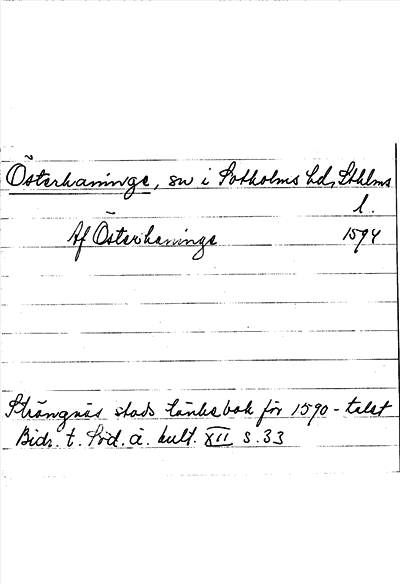 Österhaninge, sn i Sotholms hd, Sthlms
l.
Af Österhaninge 1594
Strängnäs stads tänkebok för 1590-talet
Bidr. t. Söd. ä. kult. XII s. 33